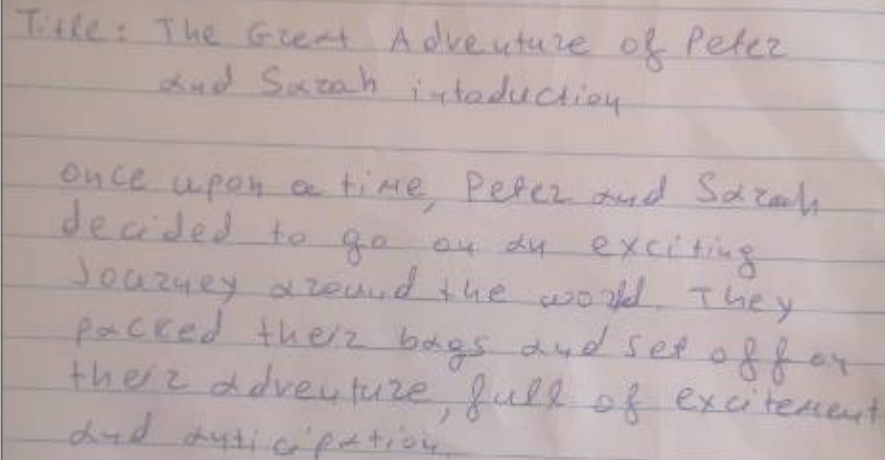 Title: The Great Adventure of Peter
and Sarah intoduction
once upon a time, Peter and Sarah
decided to go on an exciting
Journey around the world. They
packed their bags and set off on
their adventure, full of excitement
and anticipation.